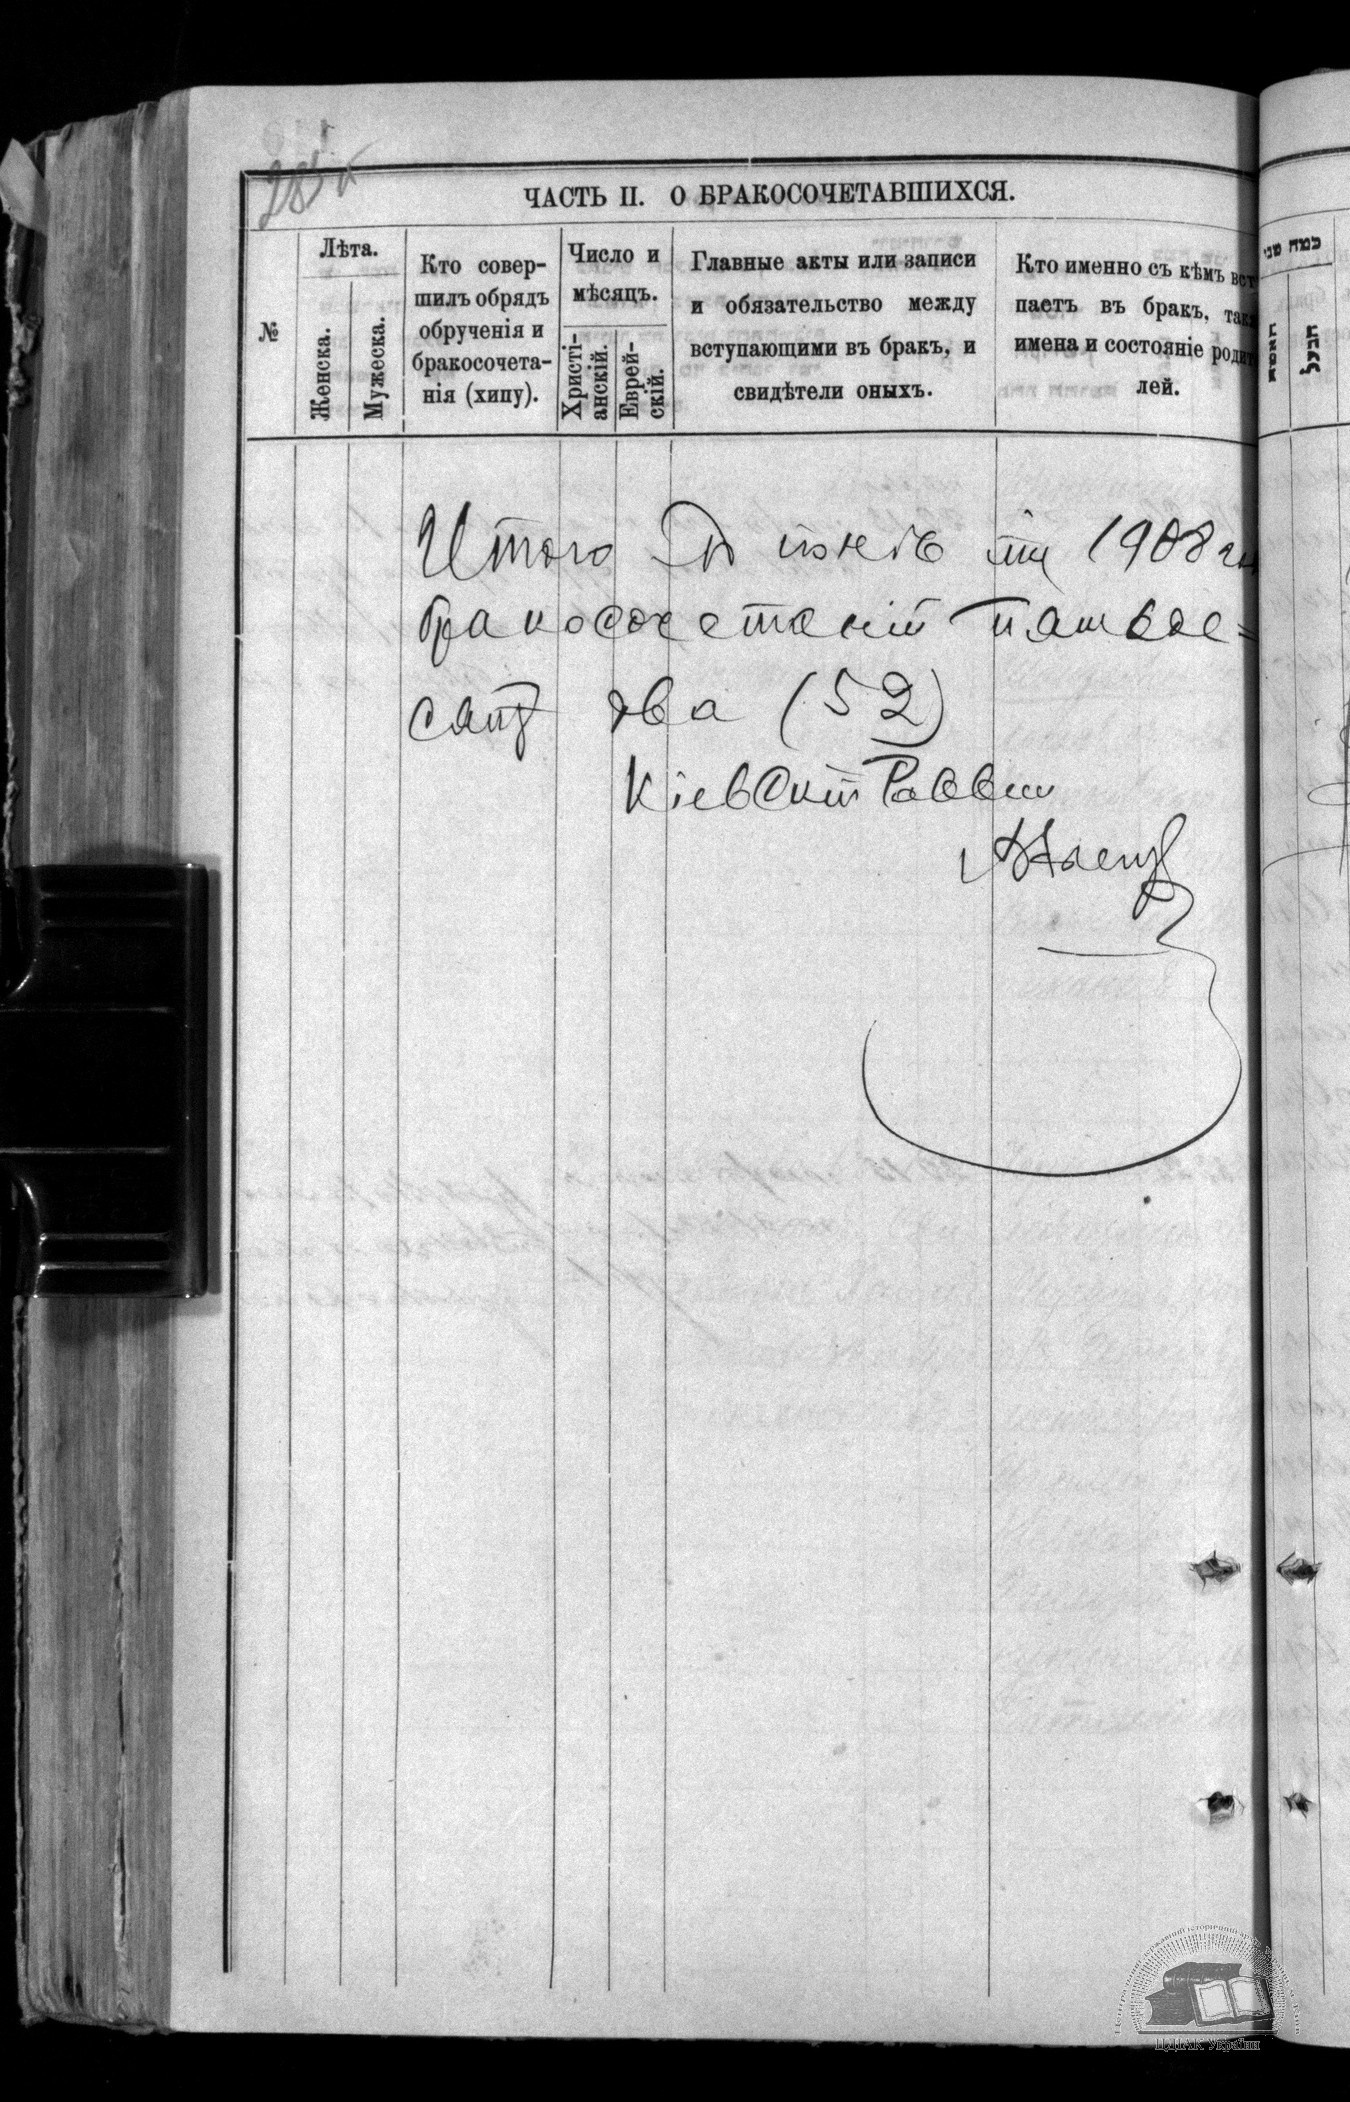 ЧАСТЬ II. О БРАКОСОЧЕТАВШИХСЯ.
№
Лѣта.
Женска.
Мужеска.
Кто совер-
шилъ обрядъ
обрученія и
бракосочета-
нія (хипу).
Число и
мѣсяцъ.
Христі-
анскій.
Еврей-
скій.
Главные акты или записи
и обязательство между
вступающими въ бракъ, и
свидѣтели оныхъ.
Кто именно съ кѣмъ вст
паетъ въ бракъ, так
имена и состояніе роди
лей.
כמה שני
Итого іюнѣ 1908
бракосочетаній пятьде=
сятъ два (52)
Кіевскій Раввин
ЦДІАК України